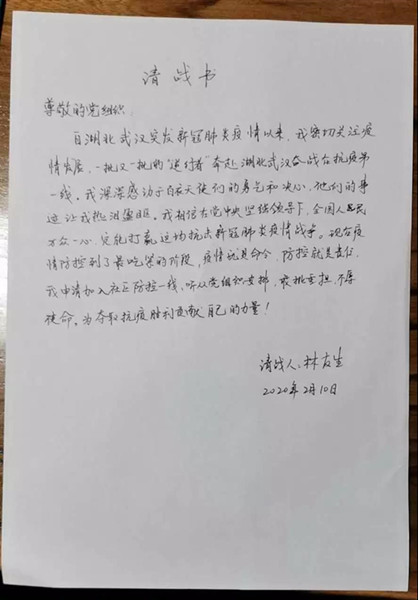 请战书
尊敬的党组织:
自湖北武汉突发新冠肺炎疫情以来,我密切关注疫
情发展,一批又一批的“逆行者”奔赴湖北武汉奋战在抗疫第
一线。我深深感动于白衣天使们的勇气和决心,他们的事
迹让我热泪盈眶。我相信在党中央坚强领导下,全国人民
万众一心,定能打赢这场抗击新冠肺炎疫情战争。现在疫
情防控到了最吃紧的阶段,疫情就是命令,防控就是责任,
我申请加入社区防控一线,听从党组织安排,敢挑重担,不辱
使命。为夺取抗疫胜利贡献自己的力量!
请战人:林友生
2020年2月10日